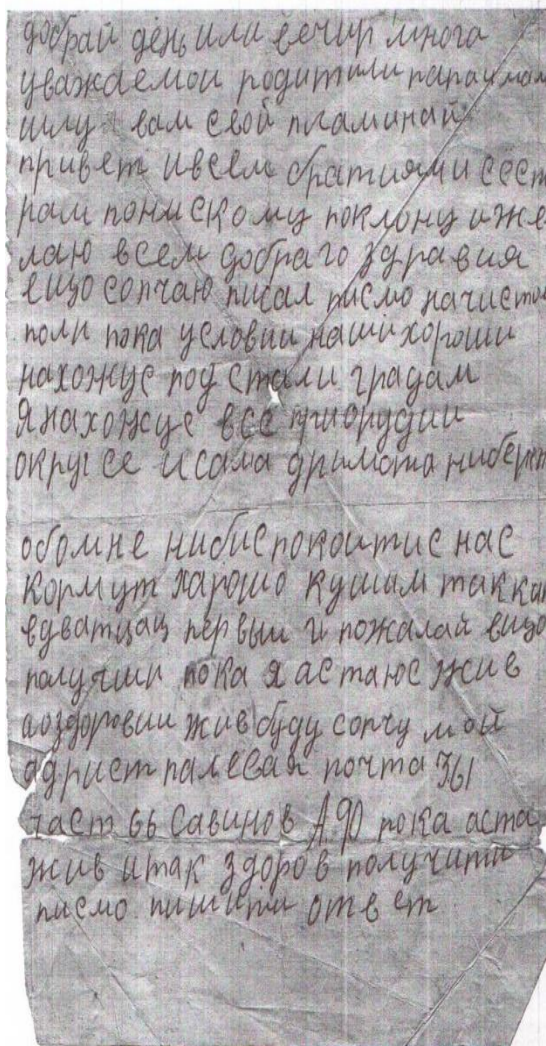 добрай день или вечир многа
уважаемои родитили папа и мам
шлу вам свой пламинай
привет ивсем братиями сест
рам понискому поклону иже
лаю всем добраго здравия
еицо сопчаю писал писмо начистом
поли пока условии наши хороши
нахожуе под стали градам
Я нахожуе все приорудии
округ се и сама дримота ниберет
обомне нибиспокоитис нас
кормут харошо кушым так как
вдватцац первым и пожалай еицо
получши пока я астаюс жив
аоздоровии жив буду сопчу мой
адрист палевая почта 361
част 66 Савинов А.Ф пока аста
жив итак здоров получити
писмо пишити ответ